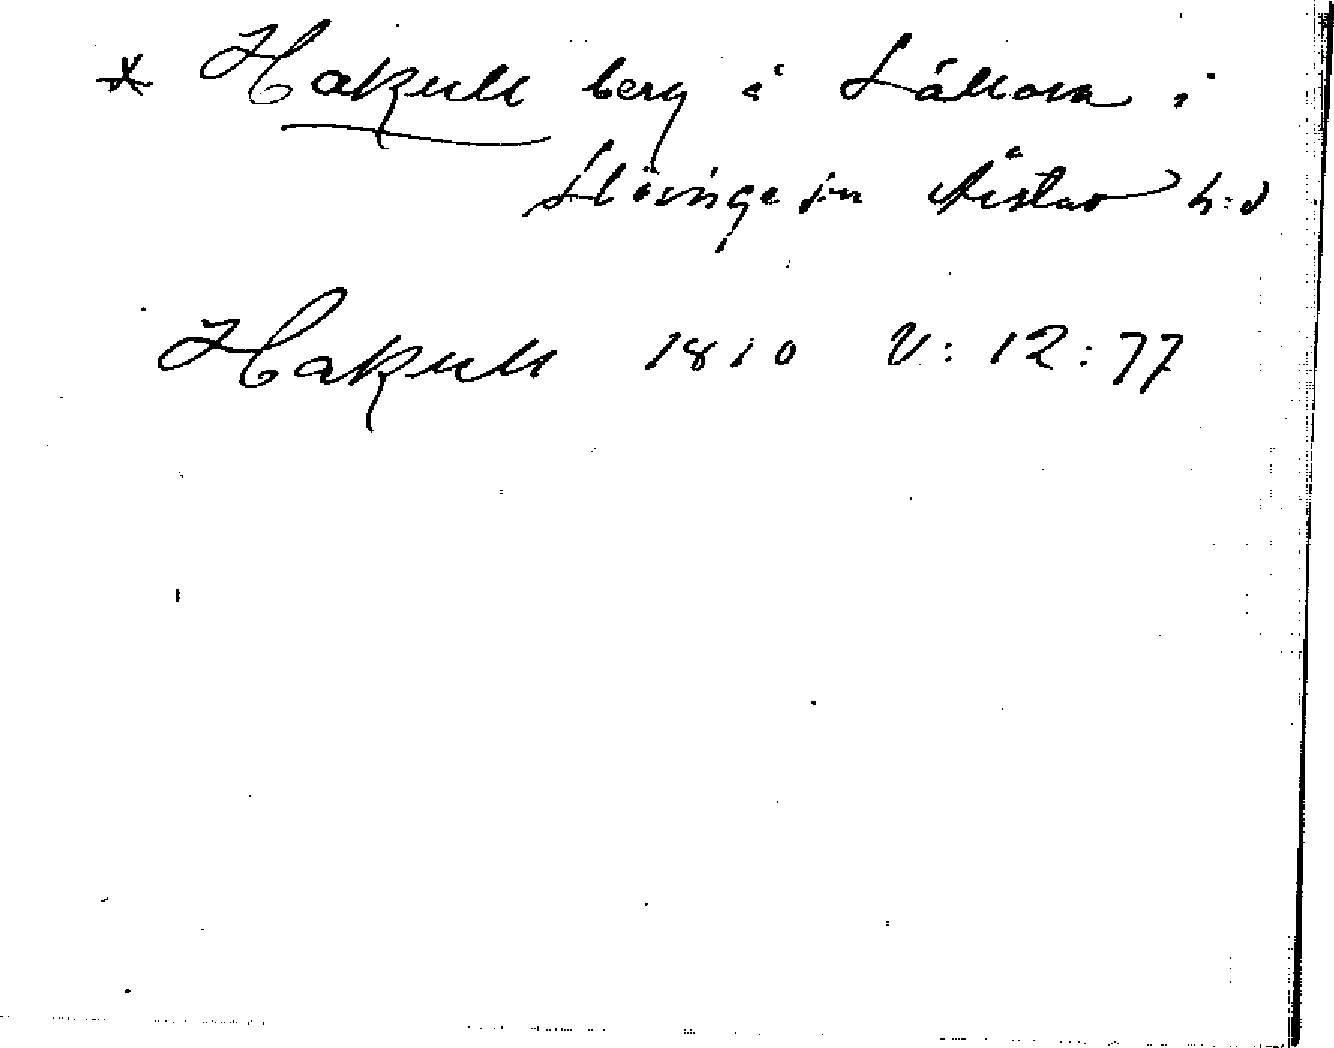 * Hakull berg å Sålla i
Slöinge sn Årstad h:d
Hakull 1810 V: 12:77